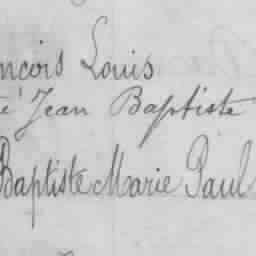 ncois Louis
é Jean Baptiste
Baptiste Marie Paul